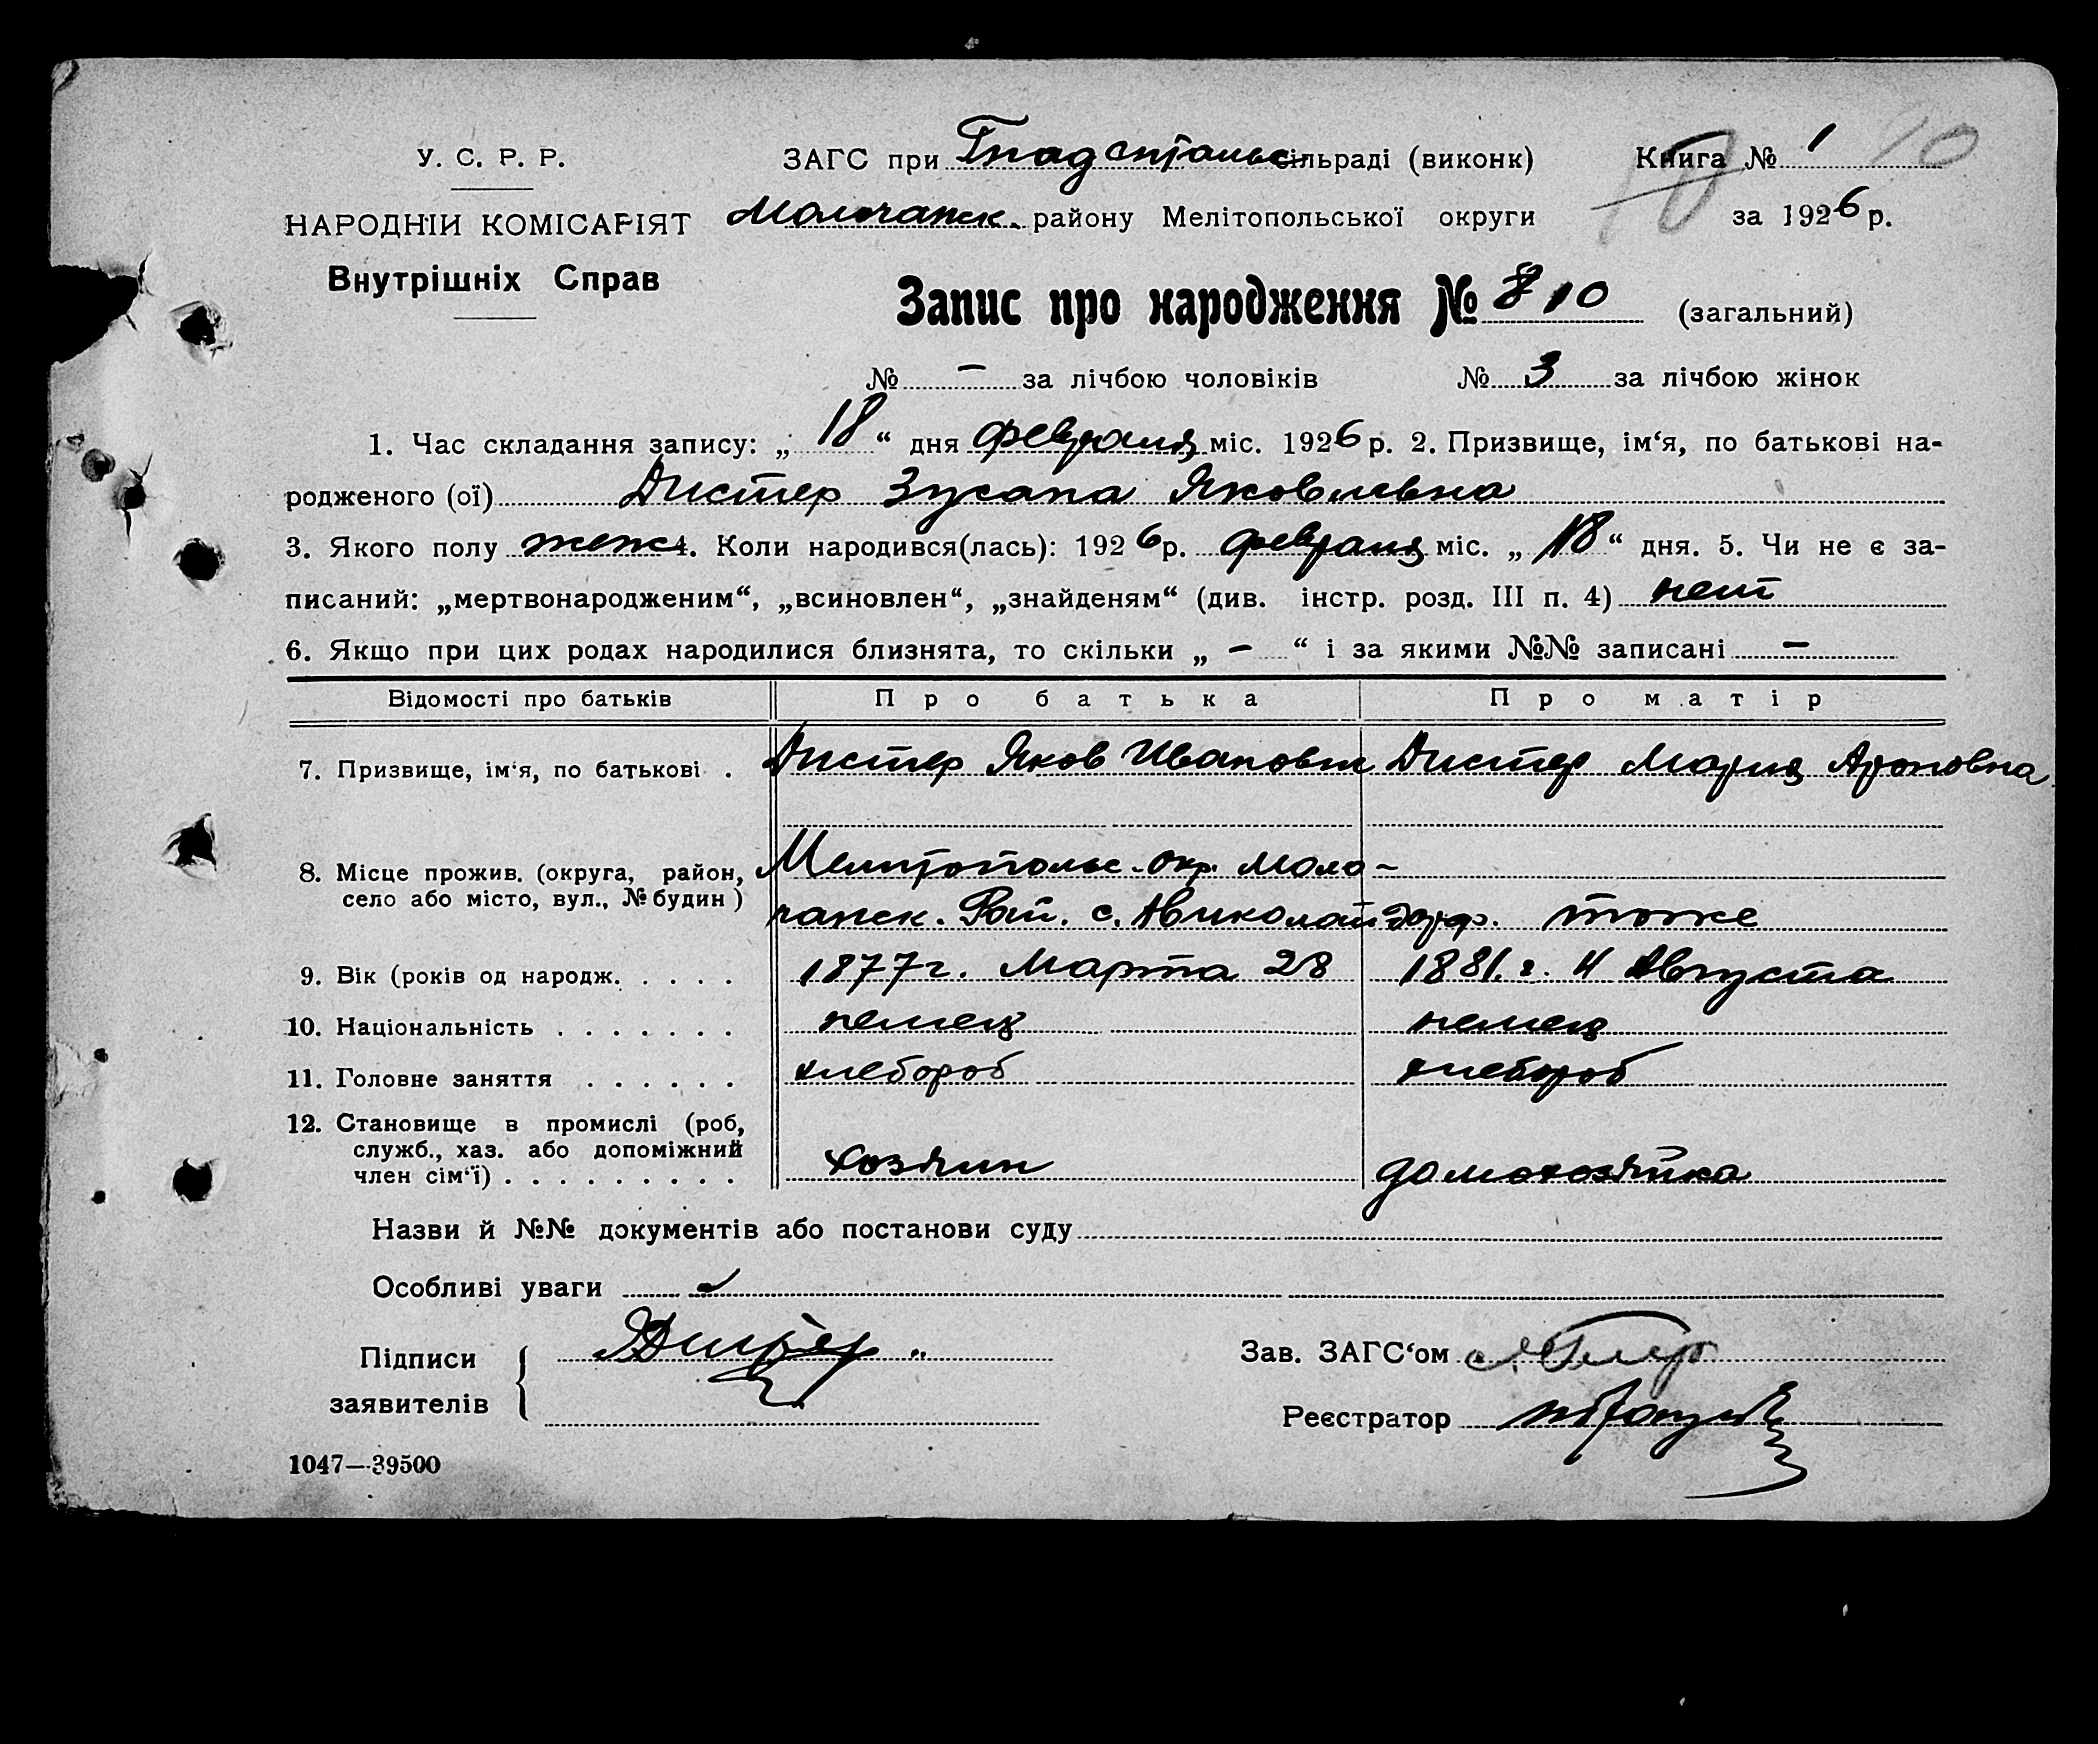 10
У. С. Р. Р.
ЗАГС при Гнаденталь сільраді (виконк)
Книга № 1
НАРОДНІЙ КОМІСАРІЯТ
Молочанск. району Мелітопольської округи
за 1926 р.
Внутрішніх Справ
Запис про народження № 10 (загальний)
№ — за лічбою чоловіків № 3 за лічбою жінок
1. Час складання запису: „ 18 “ дня февраля міс. 1926 р. 2. Призвище, ім‘я, по батькові на-
родженого (ої) Дистер Зузана Яковлевна
3. Якого полу женс 4. Коли народився(лась): 1926 р. февраля міс. „ 18 “ дня. 5. Чи не є за-
писаний: „мертвонародженим“, „всиновлен“, „знайденям“ (див. інстр. розд. III п. 4) нет
6. Якщо при цих родах народилися близнята, то скільки „ — “ і за якими №№ записані —
Відомості про батьків Про батька Про матір
7. Призвище, ім‘я, по батькові . Дистер Яков Иванович Дистер Мария Ароновна
8. Місце прожив. (округа, район, Мелитопольс. окр. Моло-
село або місто, вул., № будин) чанск. Рай. с. Николайдорф. тоже
9. Вік (років од народж. . . . . 1877 г. Марта 28 1881. г. 4 Августа
10. Національність . . . . . . . немец немец
11. Головне заняття . . . . . . хлебороб хлебороб
12. Становище в промислі (роб,
служб., хаз. або допоміжний
член сім‘ї) . . . . . . . . . хозяин домохозяйка
Назви й №№ документів або постанови суду
Особливі уваги
Підписи
заявителів
ЯДистер
Зав. ЗАГС‘ом
Реєстратор
1047—39500